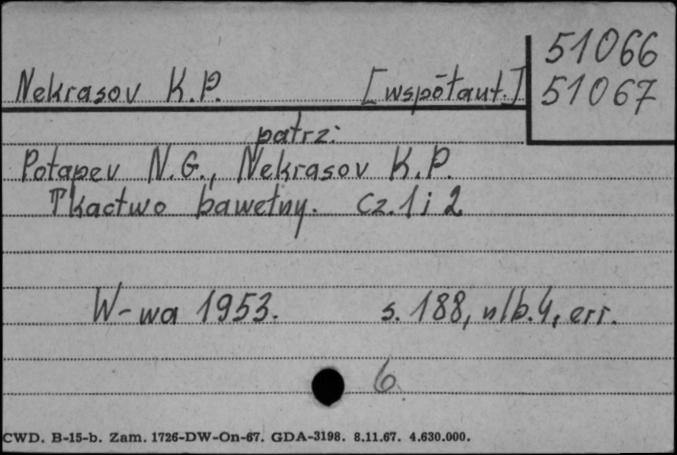 51066
Nekrasov K.P. [współaut.] 51067
patrz:
Potapev N.G., Nekrasov K.P.
Tkactwo bawełny. Cz. 1 i 2
W-wa 1953. s. 188, nlb. 4, err.
6
CWD. B-15-b. Zam. 1726-DW-On-67. GDA-3198. 8.11.67. 4.630.000.